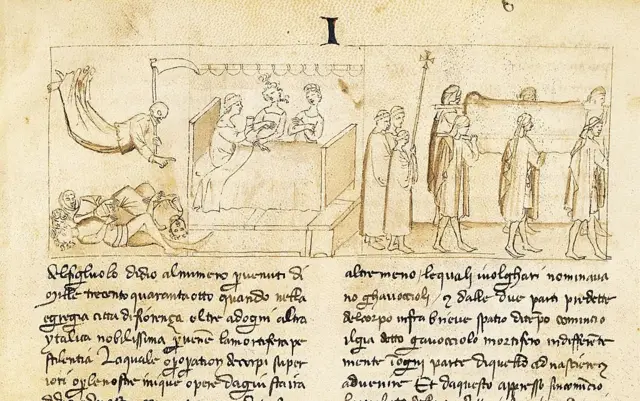 I
del figluolo didio alnumero pervenuti di
mille trecento quarantotto quando nella
egregia citta difiorenza oltre adogni altra
ytalica nobilissima pervene lamortifera pe
stilentia Laquale operation decorpi super
iori o per lenostre inique opere dagiusta ira
altremeno lequali ivolghari nominava
no ghavoccioli & dalle due parti predette
delcorpo infra brieve spatio ditempo comincio
il gia detto gavocciolo mortifero indifferente
mente i ogni parte diquello ad nasciere &
advenire Et daquesto appresso sincomincio